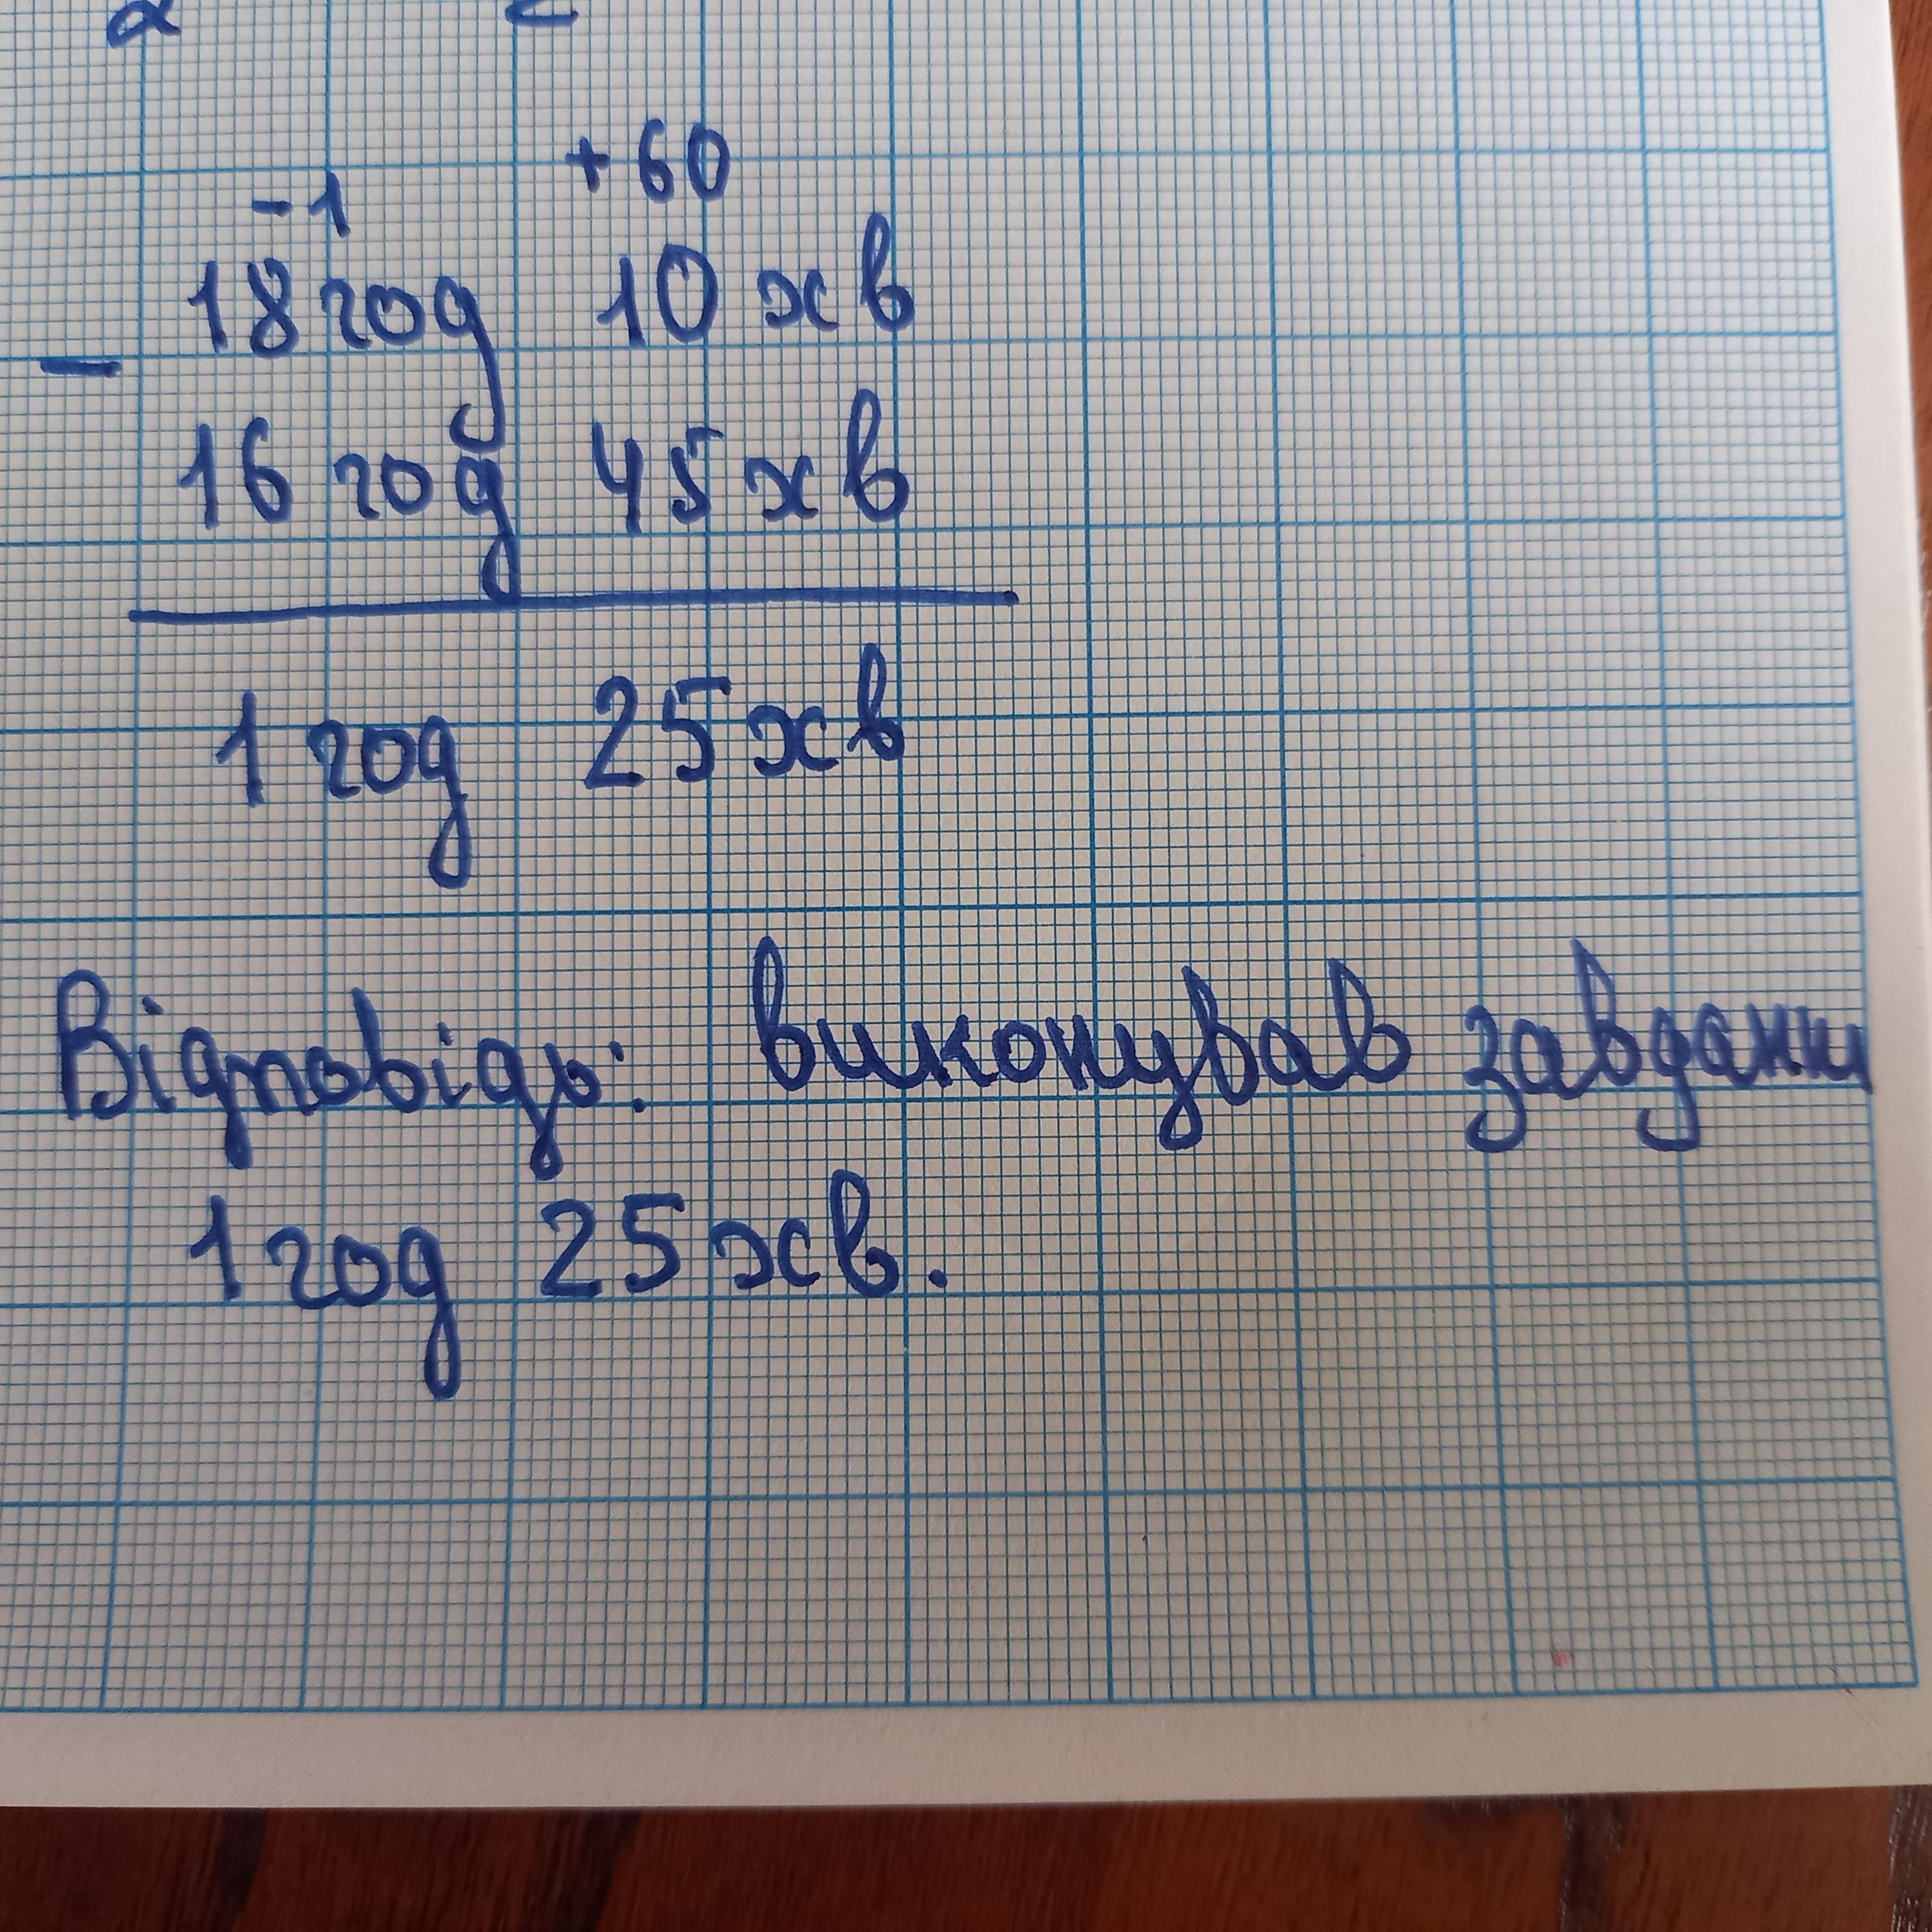 +60
-1
18 год 10 хв
-
16 год 45 хв
1 год 25 хв
Відповідь: виконував завдання
1 год 25 хв.